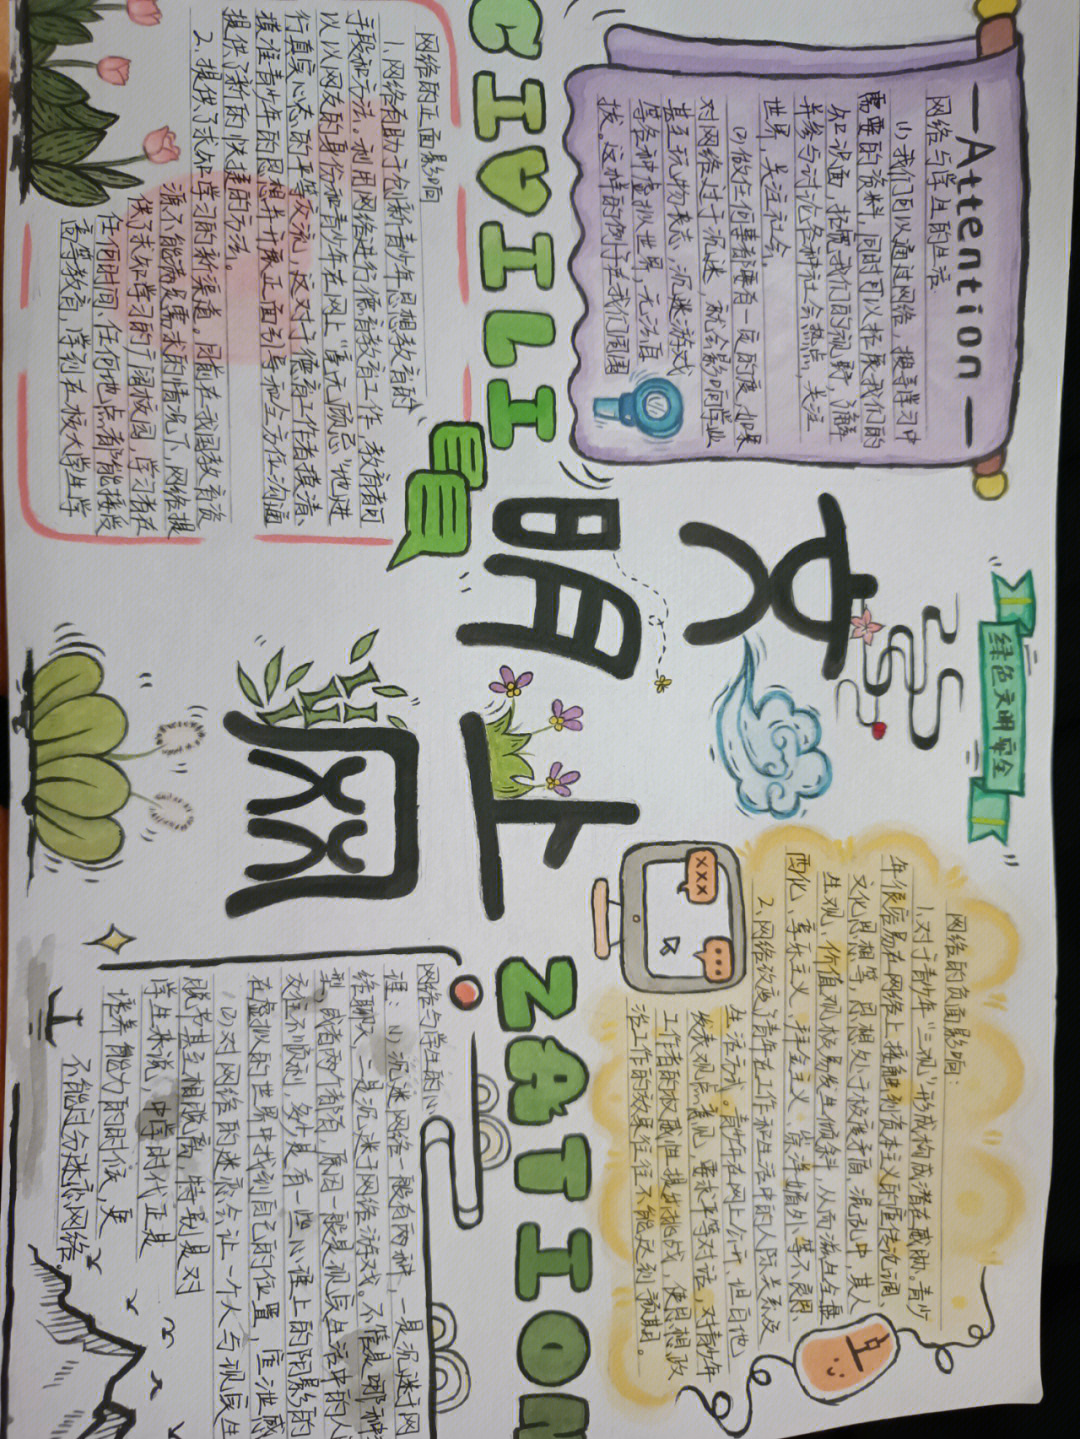 —Attention—
网络与学生的生活
(1)我们可以通过网络，搜寻学习中
需要的资料，同时可以拓展我们的
知识面，拓宽我们的视野，了解
并参与讨论各种社会热点，关注
世界，关注社会。
(2)做任何事都要有一定的度，如果
对网络过于沉迷，就会影响学业
甚至玩物丧志，沉迷游戏
等各种虚拟世界，无法自
拔。这样的例子在我们周围
绿色文明安全
网络的负面影响：
1.对于青少年“三观”形成构成潜在威胁。青少
年很容易在网络上接触到资本主义的宣传论调、
文化思想等，思想处于极度矛盾、混乱中，其人
生观、价值观极易发生倾斜，从而滋生全盘
西化、享乐主义、拜金主义、崇洋媚外等不良因、
2.网络改变了青年在工作和生活中的人际关系及
生活方式。青少年在网上公开、坦白地
发表观点意见，要求平等对话，对青少年
工作者的权威性提出挑战，使思想政
治工作的效果往往不能达到预期。
文明上网
CIVILIZATION
网络的正面影响
1.网络有助于创新青少年思想教育的
手段和方法。利用网络进行德育教育工作，教育者可
以以网友的身份和青少年在网上“毫无顾忌”地进
行真实心态的平等交流，这对于德育工作者摸清、
摸准青少年的思想并开展正面引导和全方位沟通
提供了新的快捷的方法。
2.提供了求知学习的新渠道。目前在我国教育资
源不能满足需求的情况下，网络提
供了求知学习的广阔校园，学习者在
任何时间、任何地点都能接受
高等教育，学到在校大学生学
网络与学生的心
理：(1)沉迷网络一般有两种，一是沉迷于网
络聊天，二是沉迷于网络游戏。不管是哪种
型，或者两个都有，原因一般是现实生活中的人
交往不顺利，多少是有一些心理上的阴影的
在虚拟的世界中找到自己的位置，宣泄感
(2)对网络的迷恋会让一个人与现实生
脱节甚至相脱离，特别是对
学生来说，中学时代正是
培养能力的时候，更
不能过分迷恋网络。